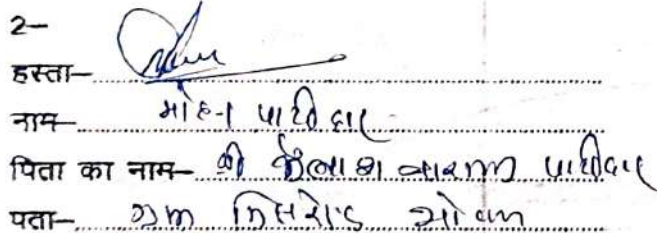 2-
हस्ता-
नाम- मोहन पाटीदार
पिता का नाम- श्री कैलाश नारायण पाटीदार
पता- ग्राम मिसरोद भोपाल